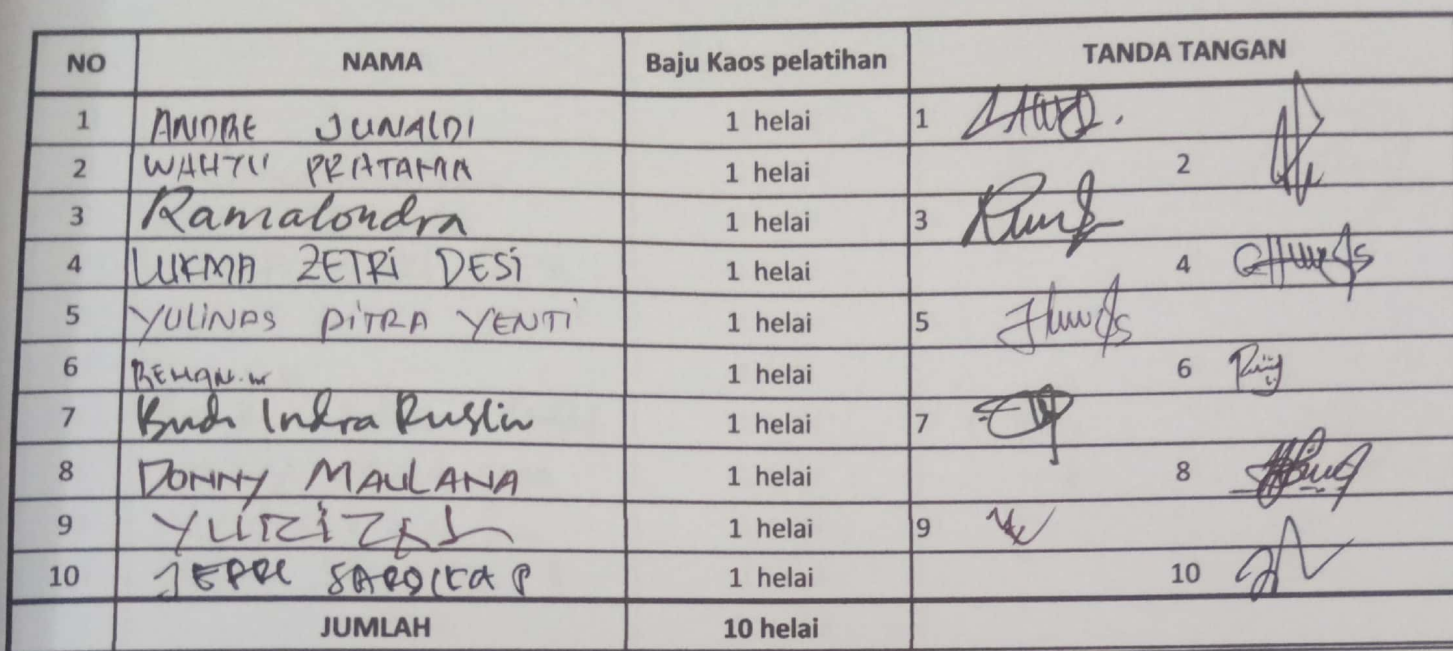 NO NAMA Baju Kaos pelatihan TANDA TANGAN
1 ANDRE JUNALDI 1 helai 1
2 WAHYU PRATAMA 1 helai 2
3 Ramalondra 1 helai 3
4 LUKMA ZETRI DESI 1 helai 4
5 YULINAS PITRA YENTI 1 helai 5
6 1 helai 6
7 Budi Indra Ruslin 1 helai 7
8 DONNY MAULANA 1 helai 8
9 YURIZAL 1 helai 9
10 1 helai 10
JUMLAH 10 helai